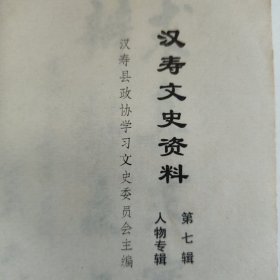 汉寿文史资料
第七辑
人物专辑
汉寿县政协学习文史委员会主编